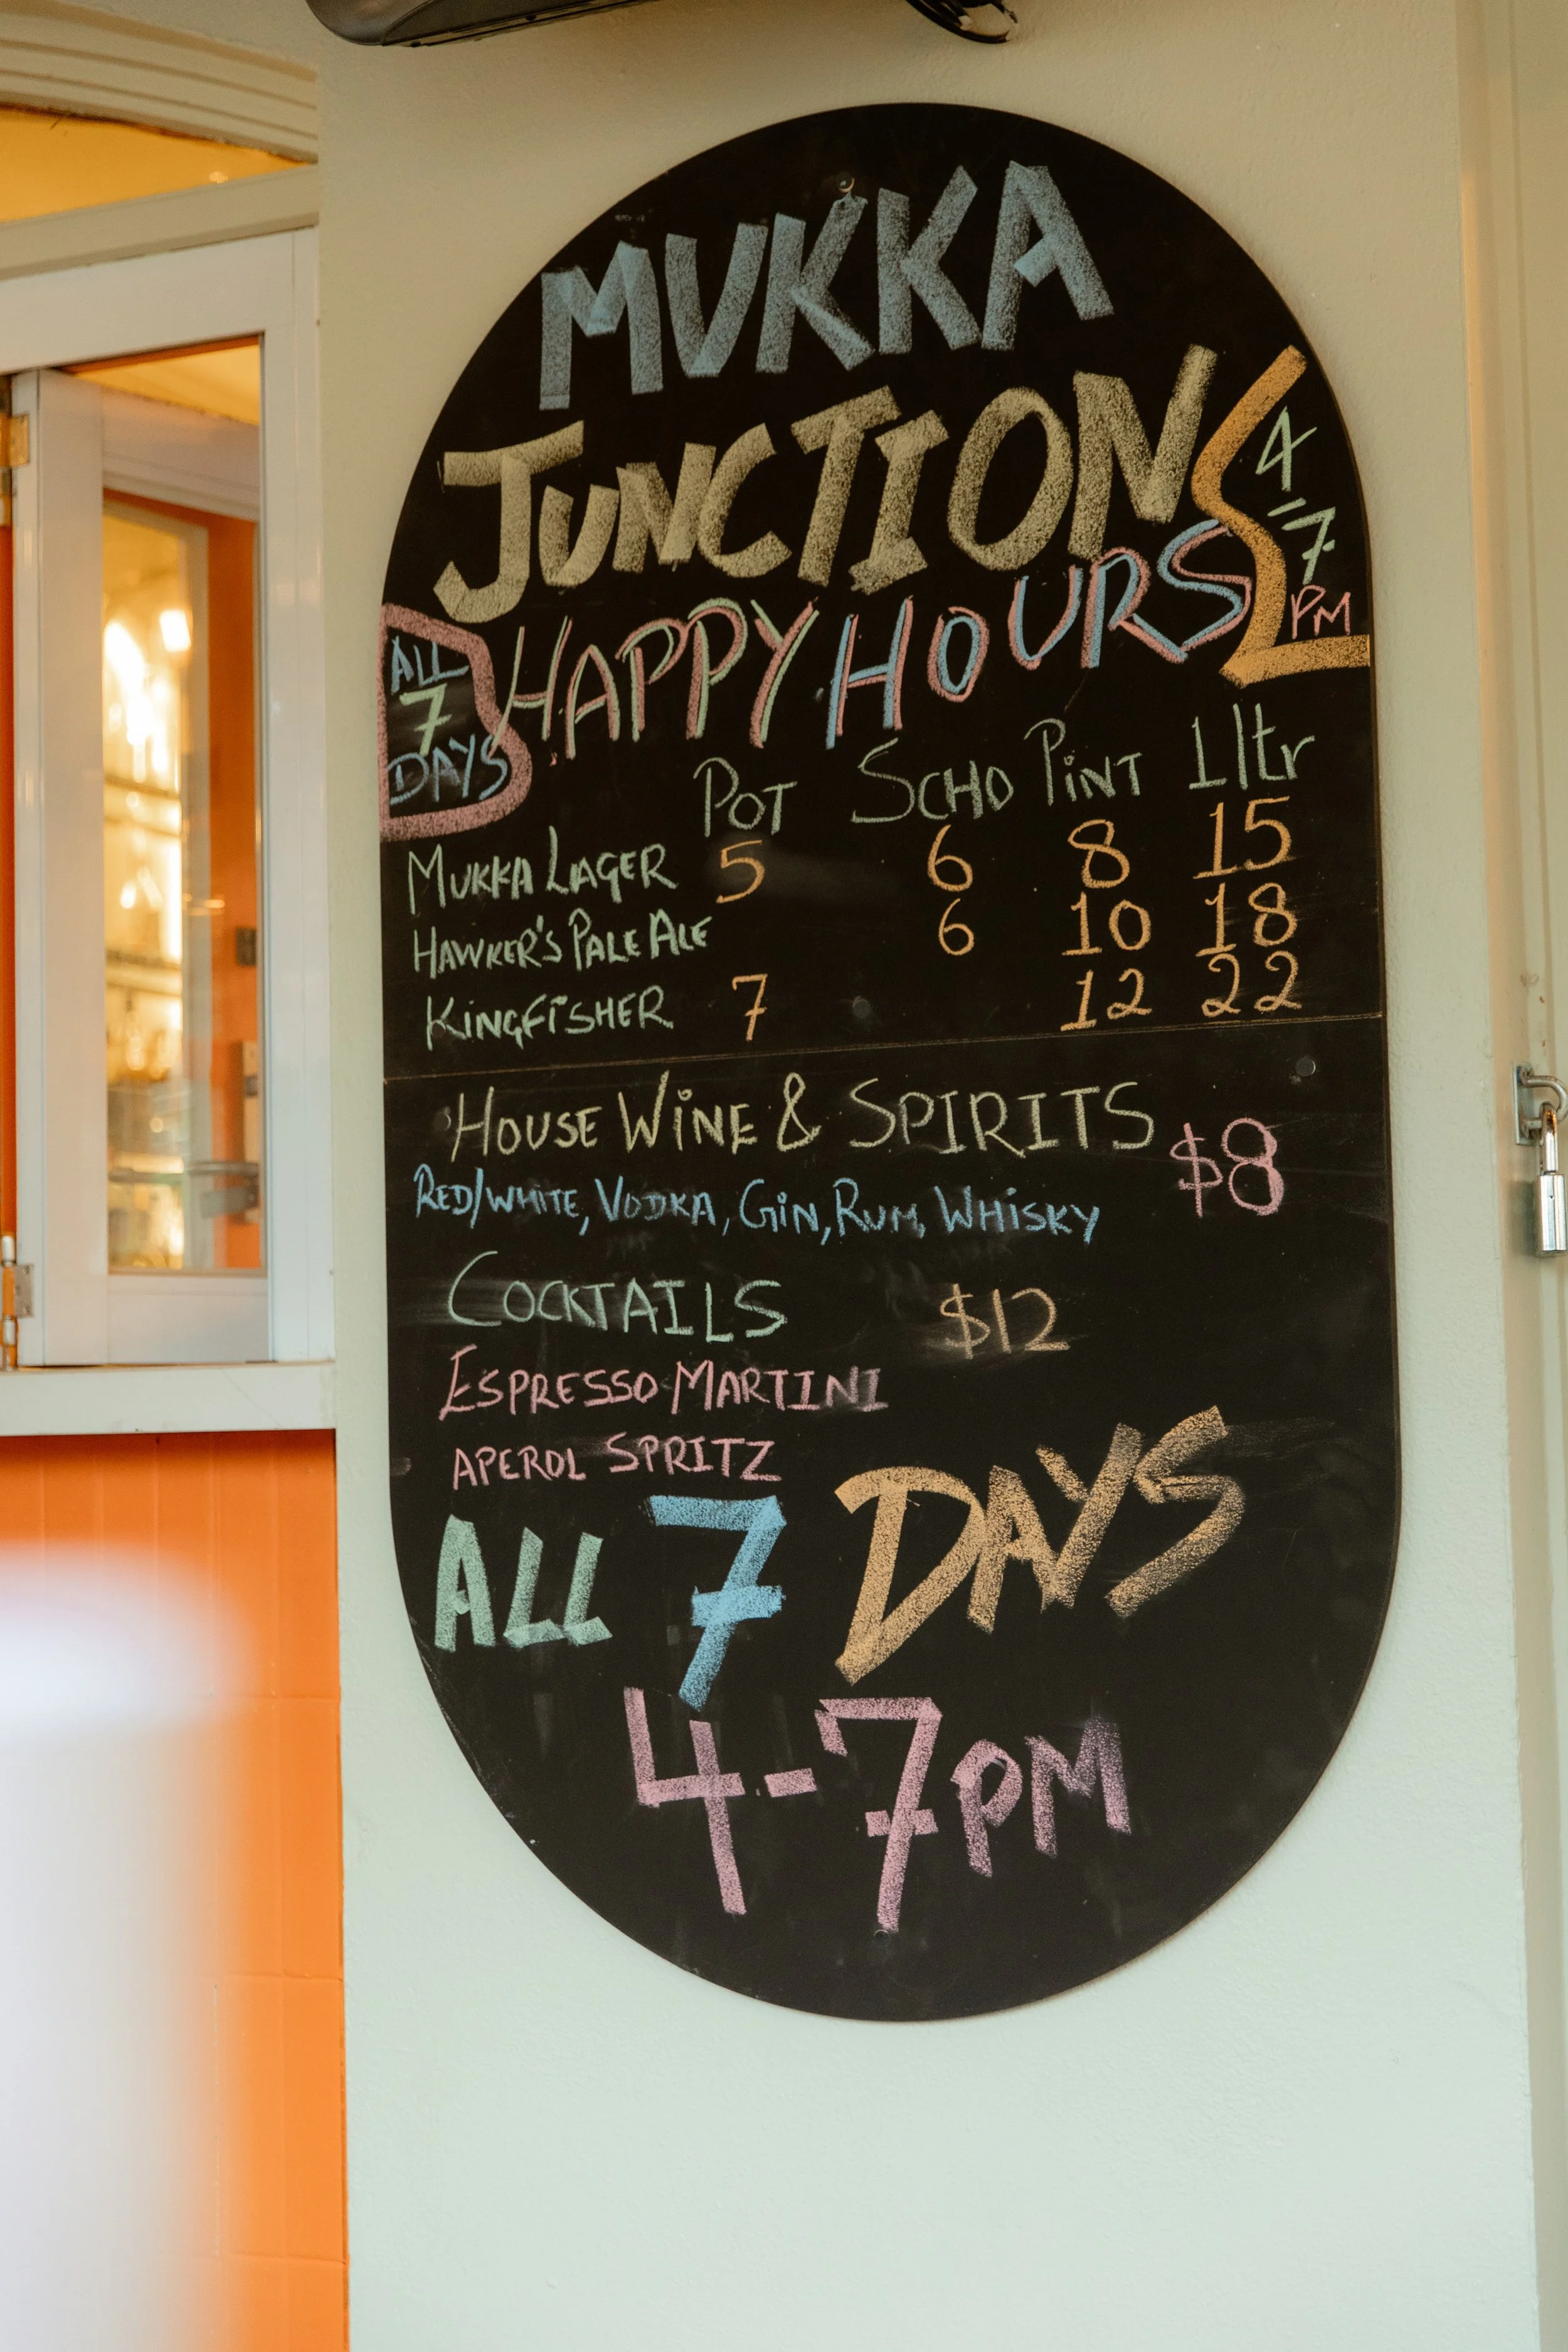 MUKKA
JUNCTION
4-7
PM
HAPPY HOURS
ALL
7
DAYS
POT SCHO PINT 1ltr
MUKKA LAGER 5 6 8 15
HAWKER'S PALE ALE 6 10 18
KINGFISHER 7 12 22
HOUSE WINE & SPIRITS $8
RED/WHITE, VODKA, GIN, RUM, WHISKY
COCKTAILS $12
ESPRESSO MARTINI
APEROL SPRITZ
ALL 7 DAYS
4-7PM